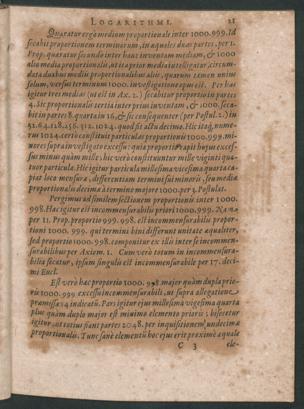 LOGARITHMI. 21
Quæratur ergo medium proportionale inter 1000.999. Id
secabit proportionem terminorum, in æquales duas partes, per 1.
Prop. quæratur secundo inter hanc inventam mediam, & 1000
alia media proportionalis, ut ita prior media intelligatur, circum-
data duabus mediis proportionalibus aliis, quarum tamen unius
solum, versus terminum 1000. investigatione opus est. Per hac
igitur tres medias (ut est in Ax. 2.) secabitur proportio in partes
4. Sic proportionalis tertia inter prius inventam, & 1000. seca-
bit in partes 8. quarta in 16, & sic consequenter (per Postul. 2.) in
32. 64. 128. 256. 512. 1024. quod sit actu decimo. Hic itaq. nume-
rus 1024. certo constituit particulas proportionis 1000. 999. mi-
nores supra investigato excessu: quia proportio rapit hujus excessus
sus minus quam mille, hic vero constituuntur mille viginti qua-
tuor particulæ. Hic igitur particula millesima vigesima quarta ca-
piat loco mensuræ, differentiam termini sui minoris, seu mediæ
proportionalis decimæ à termino majore 1000. per 3. Postulat.
Pergimus ad similem sectionem proportionis inter 1000.
998. Hæc igitur est incommensurabilis priori 1000. 999. Nam
per 11. Prop. proportio 999. 998. est incommensurabilis propor-
tioni 1000. 999. qui termini bini differunt unitate æqualiter,
sed proportio 1000. 998. componitur ex illis inter se incommen-
surabilibus per Axiom. 1. Cum vero totum in incommensura-
bilia secatur, ipsum singulis est incommensurabile per 17. deci-
mi Eucl.
Est vero hæc proportio 1000. 998 major quàm dupla prio-
ris 1000. 999 excessu incommensurabili, ut supra allegatione
præmissa 14 indicavit. Pars igitur ejus millesima vigesima quarta
plus quàm dupla major est minimo elemento prioris; bisecetur
igitur, ut totius fiant partes 2048. per inquisitionem undecimæ
proportionalis. Tunc sanè elementū hoc ejus erit proximè æquale
C 3 ele-